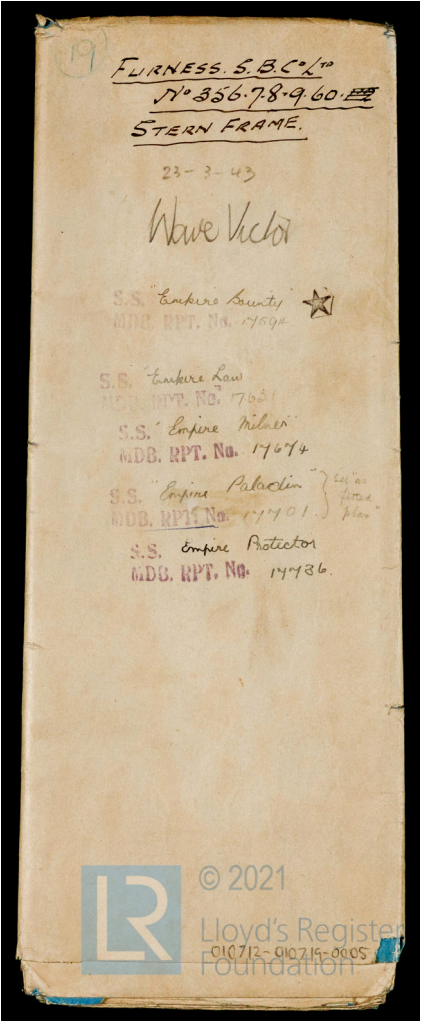 19
FURNESS. S.B. Co LTD
No 356.7.8.9.60.
STERN FRAME.
23-3-43
Wave Victor
S.S. "Empire Bounty"
MDB. RPT. No.
S.S. "Empire Law"
MDB. RPT. No.
S.S. "Empire Milner"
MDB. RPT. No. 17674
S.S. "Empire Paladin" See "as
fitted
MDB. RPT. No. 17701. plan"
S.S. Empire Protector
MDB. RPT. No. 17736.
© 2021
LR
Lloyd's Register
Foundation
010712-010719-0005